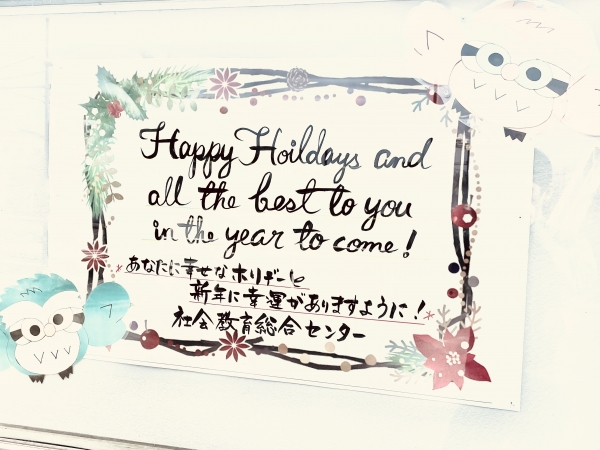 Happy Hoildays and
all the best to you
in the year to come!
あなたに幸せなホリデーと
新年に幸運がありますように!
社会教育総合センター